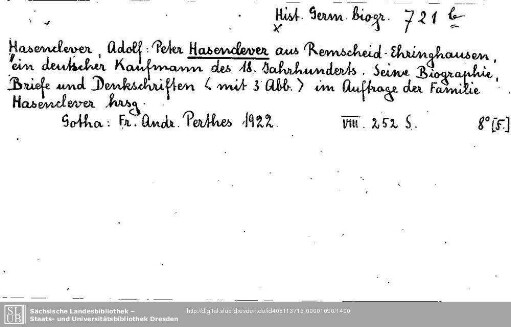 Hist. Germ. Biogr. 721 b
x
Hasenclever, Adolf: Peter Hasenclever aus Remscheid-Ehringhausen,
ein deutscher Kaufmann des 18. Jahrhunderts. Seine Biographie,
Briefe und Denkschriften (mit 3 Abb.) im Auftrage der Familie
Hasenclever hrsg.
Gotha: Fr. Andr. Perthes 1922. VIII. 252 S. 8° [5.]
SLUB
Sächsische Landesbibliothek –
Staats- und Universitätsbibliothek Dresden